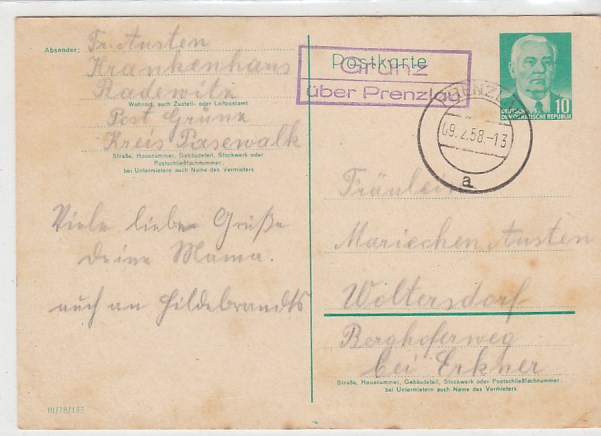 Absender:
Fr. Austen
Krankenhaus
Radewitz
Wohnort, auch Zustell- oder Leitpostamt
Post Grünz
Kreis Pasewalk
Straße, Hausnummer, Gebäudeteil, Stockwerk oder
Postschließfachnummer;
bei Untermietern auch Name des Vermieters
Viele liebe Grüße
Deine Mama.
auch an Hildebrandts
III/18/185
Postkarte
Grünz
über Prenzlau
PRENZLAU
09.2.58.-13
a
10
DEUTSCHE
DEMOKRATISCHE REPUBLIK
Fräulein
Mariechen Austen
Woltersdorf
Berghoferweg
bei Erkner
Straße, Hausnummer, Gebäudeteil, Stockwerk oder Postschließfachnummer;
bei Untermietern auch Name des Vermieters